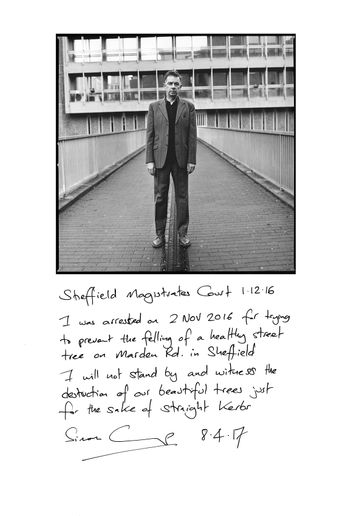 Sheffield Magistrates Court 1.12.16
I was arrested on 2 NOV 2016 for trying
to prevent the felling of a healthy street
tree on Marden Rd. in Sheffield
I will not stand by and witness the
destruction of our beautiful trees just
for the sake of straight Kerbs
Simon 8.4.17